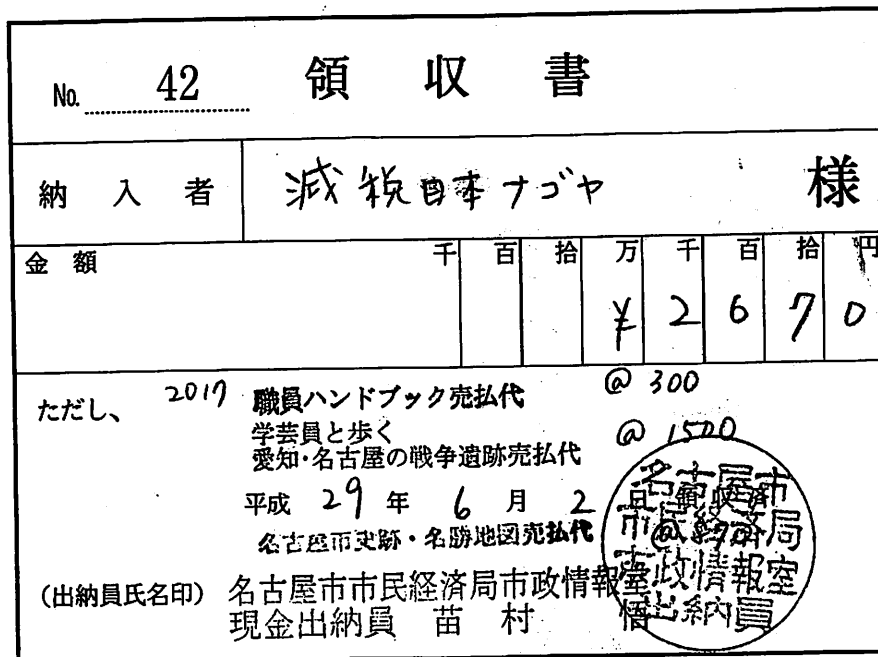 No. 42 領収書
納入者 減税日本ナゴヤ 様
金額 千 百 拾 万 千 百 拾 円
¥ 2 6 7 0
ただし、 2017 職員ハンドブック売払代 @ 300
学芸員と歩く
愛知・名古屋の戦争遺跡売払代 @ 1500
平成 29 年 6 月 2 日 領収済
名古屋市史跡・名勝地図売払代
(出納員氏名印) 名古屋市市民経済局市政情報室
現金出納員 苗村 悟
名古屋市
市民経済局
市政情報室
出納員